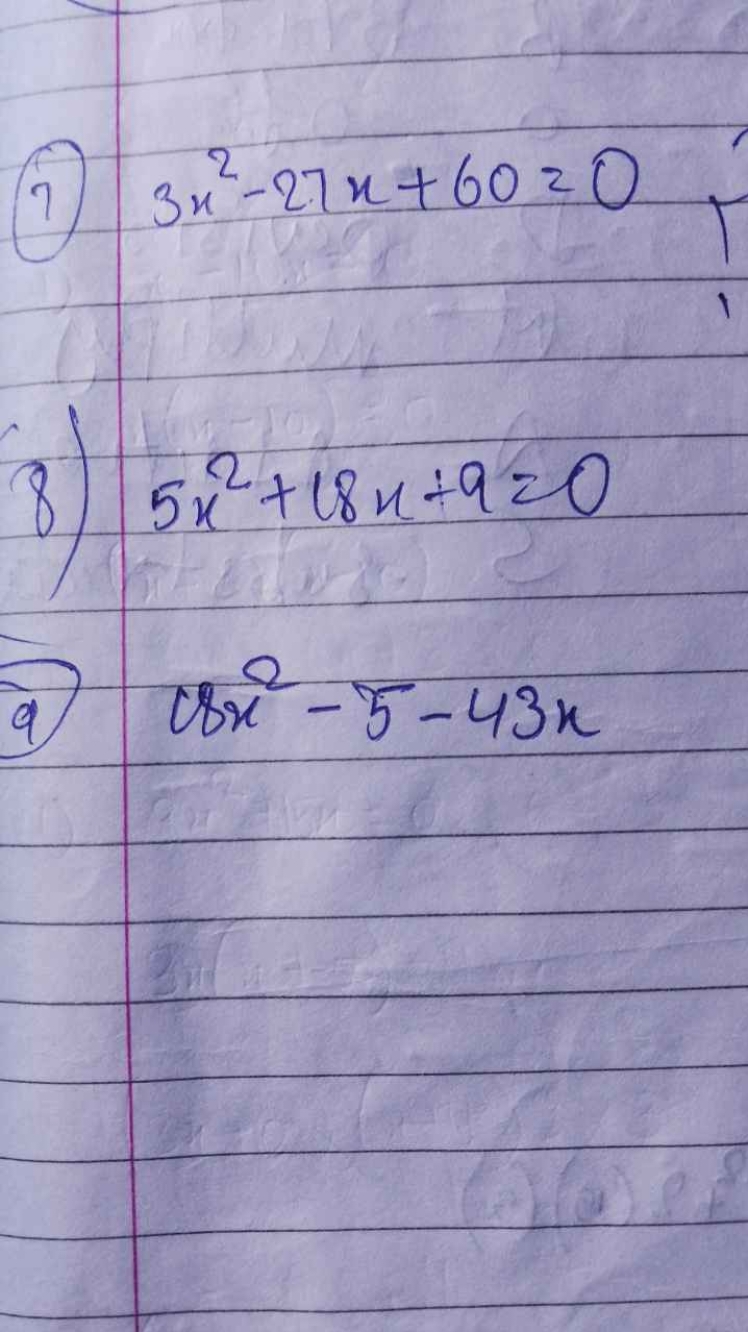 7 3x² - 27x + 60 = 0
8) 5x² + 18x + 9 = 0
9 18x² - 5 - 43x